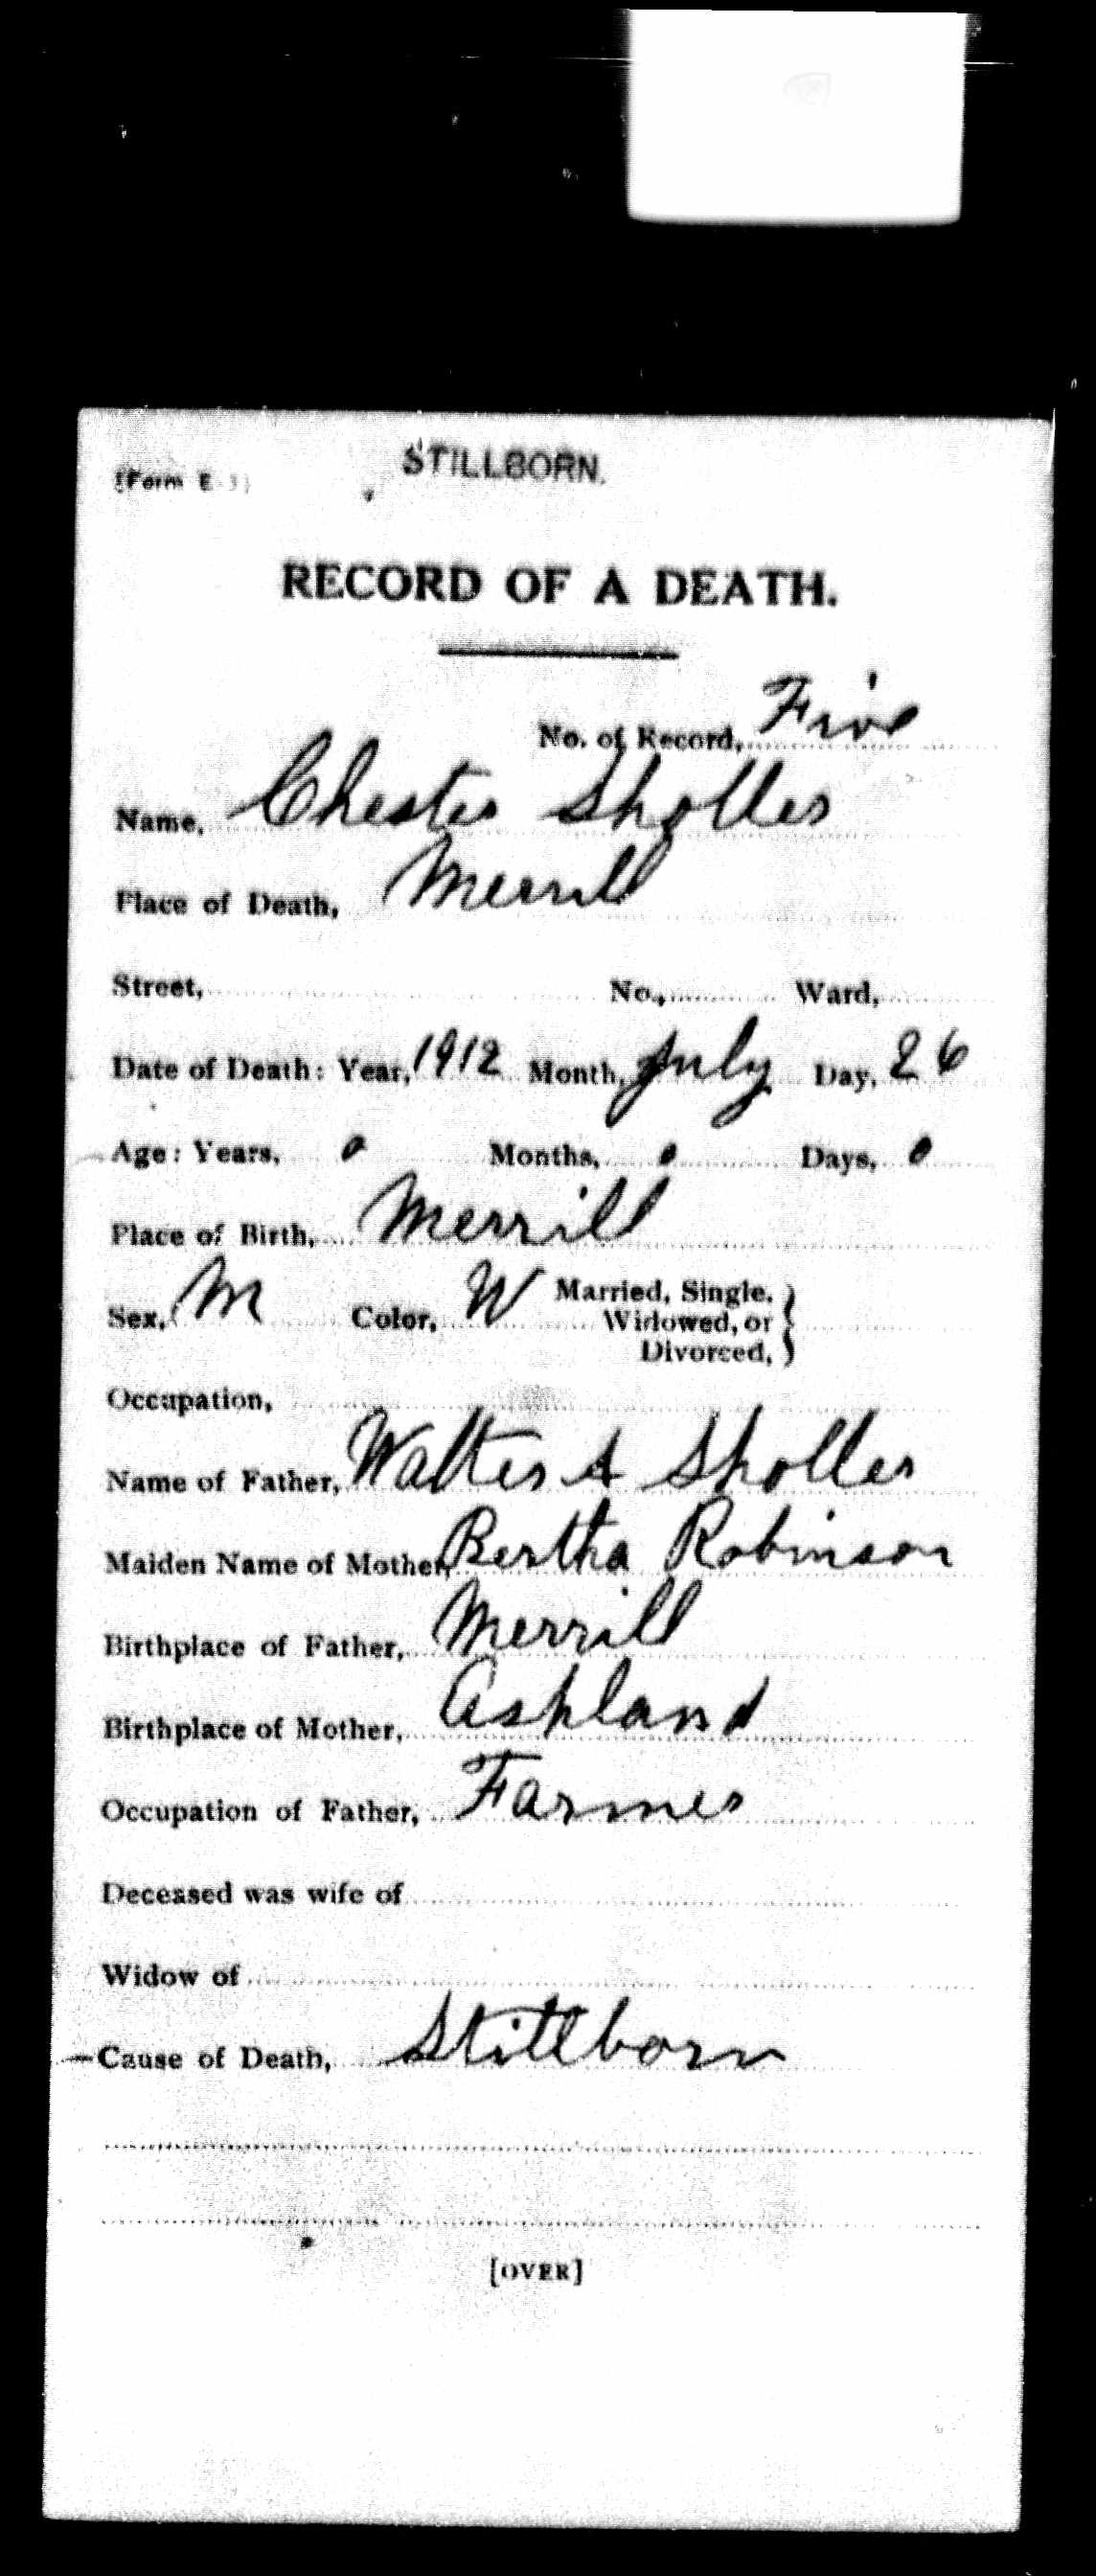 STILLBORN.
[Form E 3]
RECORD OF A DEATH.
No. of Record, Five
Name, Chester Sholler
Place of Death, Merrill
Street, No., Ward,
Date of Death: Year, 1912 Month, July Day, 26
Age: Years, 0 Months, 0 Days, 0
Place of Birth, Merrill
Sex, M Color, W Married, Single,
Widowed, or
Divorced,
Occupation,
Name of Father, Walter A Sholler
Maiden Name of Mother, Bertha Robinson
Birthplace of Father, Merrill
Birthplace of Mother, Ashland
Occupation of Father, Farmer
Deceased was wife of
Widow of
Cause of Death, Stillborn
[OVER]